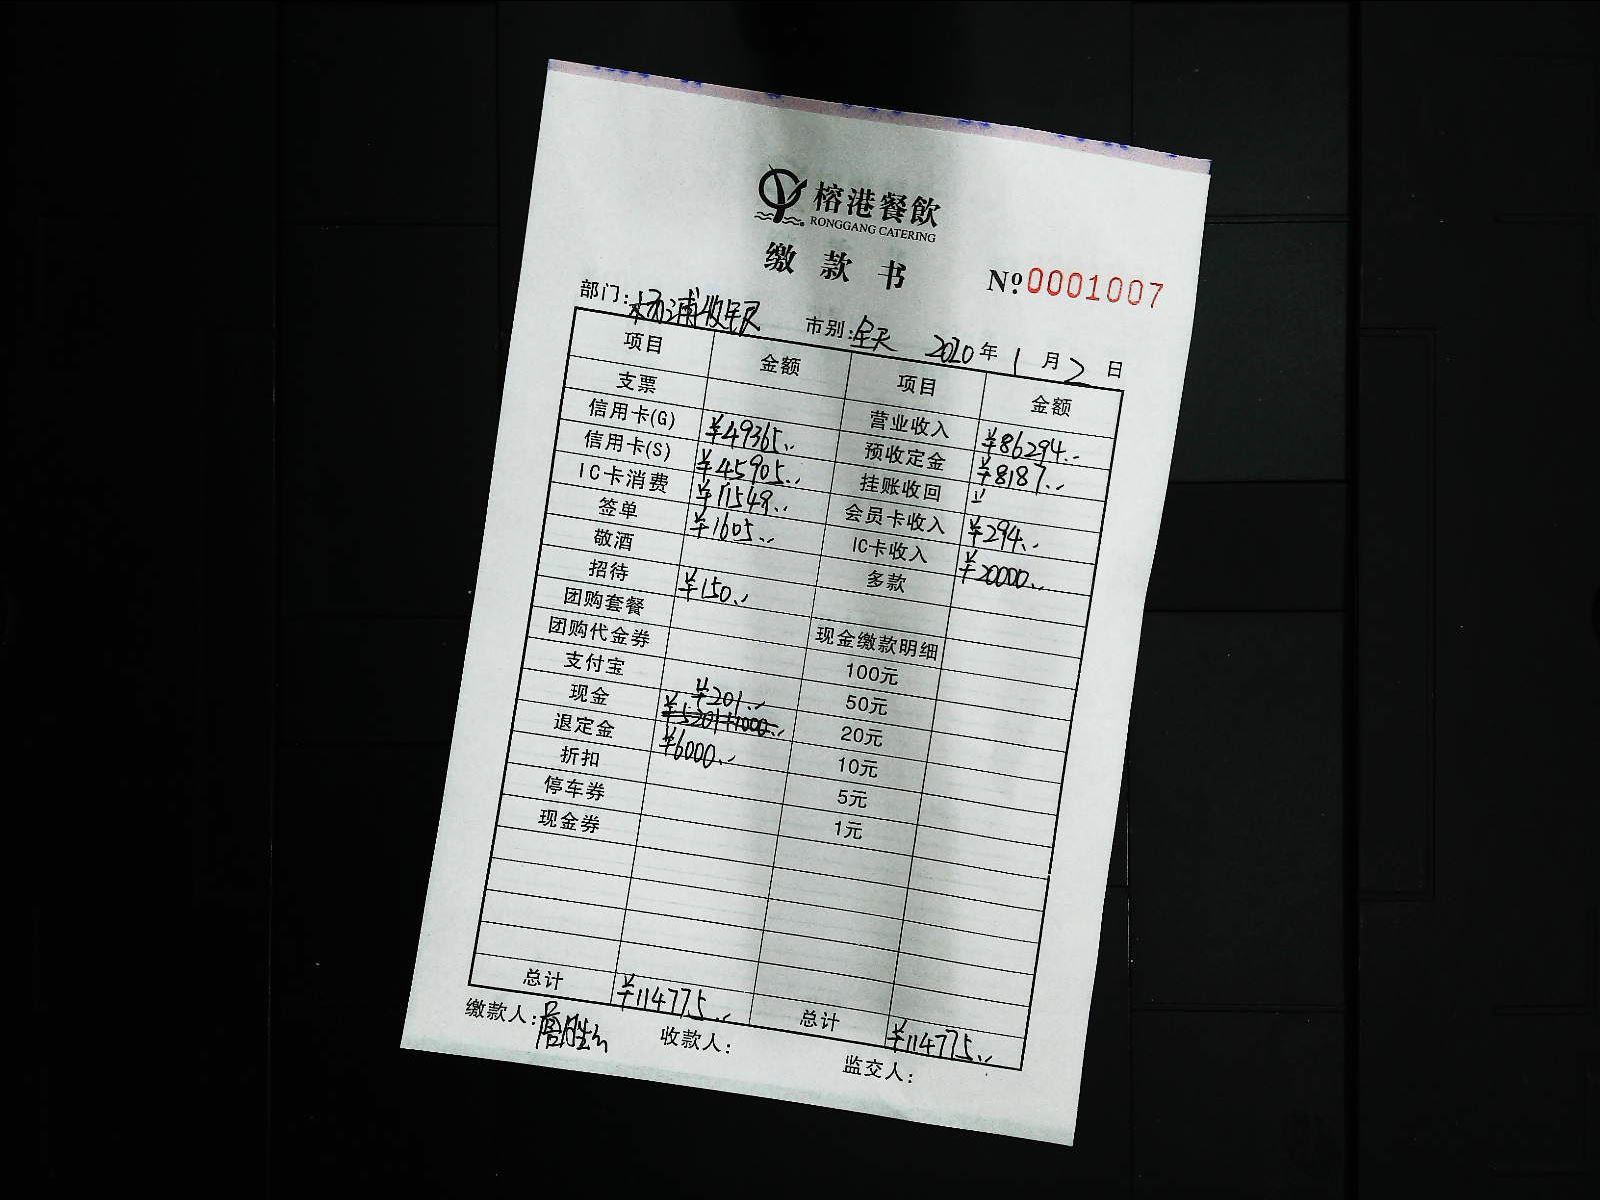 榕港餐飲
RONGGANG CATERING
缴款书
Nº0001007
部门: 杨浦收银 市别: 全天 2020年1月2日
项目 金额 项目 金额
支票 营业收入 ¥86294.
信用卡(G) ¥49365. 预收定金 ¥8187.
信用卡(S) ¥45905. 挂账收回
IC卡消费 ¥11549. 会员卡收入 ¥294.
签单 ¥1605. IC卡收入 ¥20000.
敬酒 多款
招待 ¥150.
团购套餐 现金缴款明细
团购代金券 100元
支付宝 50元
现金 ¥201. 20元
退定金 ¥6000. 10元
折扣 5元
停车券 1元
现金券
总计 ¥114775. 总计 ¥114775.
缴款人: 收款人: 监交人: